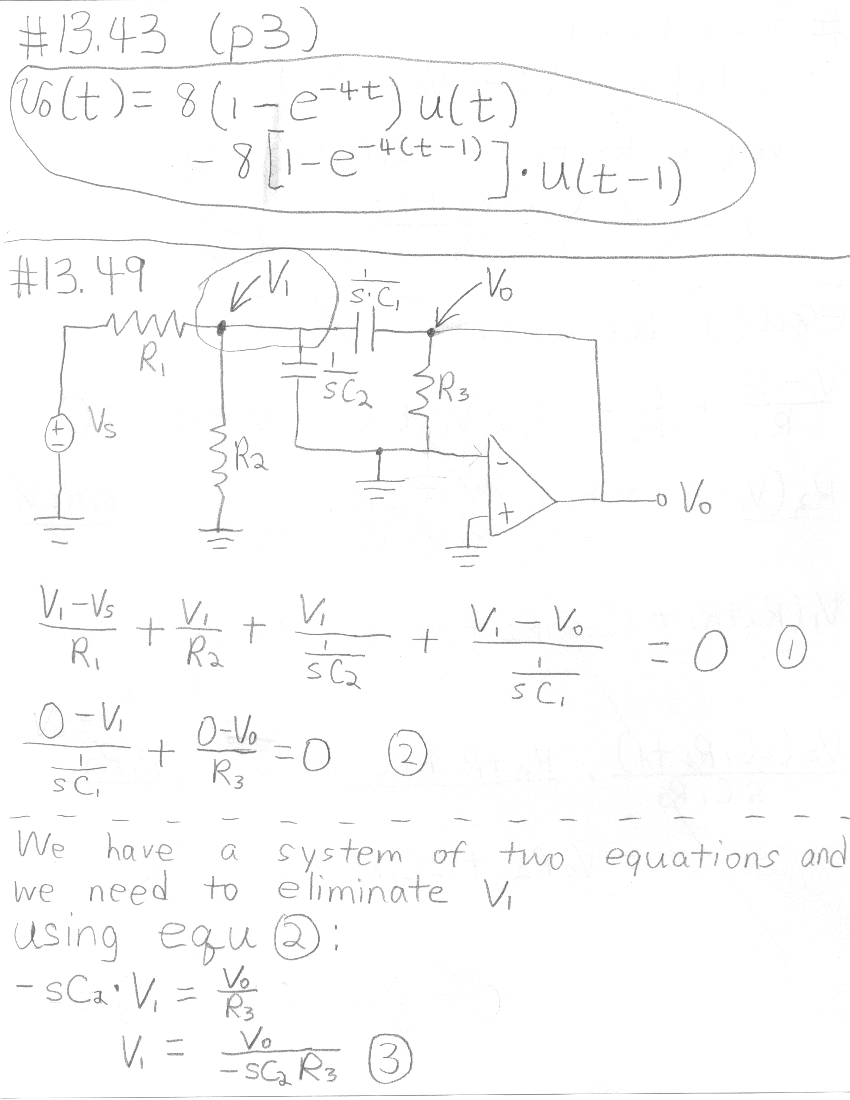 #13.43 (p3)
V₀(t) = 8(1-e^{-4t}) u(t)
- 8[1-e^{-4(t-1)}]·u(t-1)
#13.49
V₁
1/(s·C₁)
V₀
R₁
1/(sC₂)
R₃
+
-
Vs
R₂
-
+
V₀
(V₁-Vs)/R₁ + V₁/R₂ + V₁/(1/(sC₂)) + (V₁-V₀)/(1/(sC₁)) = 0 ①
(0-V₁)/(1/(sC₁)) + (0-V₀)/R₃ = 0 ②
We have a system of two equations and
we need to eliminate V₁
using equ ②:
-sC₂·V₁ = V₀/R₃
V₁ = V₀/(-sC₂R₃) ③